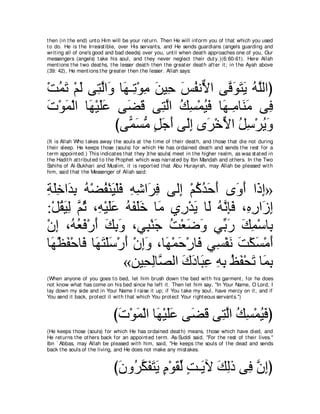 then (in the end) unto Him will be your return. Then He will inform you of that which you used
to do. He is the Irresistible, over His servants, and He sends guardians (angels guarding and
writing all of one's good and bad deeds) over you, until when death approaches one of you, Our
messengers (angels) take his soul, and they never neglect their duty.)(6:60-61). Here Allah
mentions the two deaths, the lesser death then the greater death after it; in the Ayah above
(39: 42), He mentions the greater then the lesser. Allah says:
(اللَّهُ يَتَوَفَّى الأَنفُسَ حِينَ مِوْتِـهَا وَالَّتِى لَمْ تَمُتْ
فِى مَنَامِـهَا فَيُمْسِكُ الَّتِى قَضَى عَلَيْهَا الْمَوْتَ
وَيُرْسِلُ الأُخْرَى إِلَى أَجَلٍ مُّسَمًّى)
(It is Allah Who takes away the souls at the time of their death, and those that die not during
their sleep. He keeps those (souls) for which He has ordained death and sends the rest for a
term appointed.) This indicates that they (the souls) meet in the higher realm, as was stated in
the Hadith attributed to the Prophet which was narrated by Ibn Mandah and others. In the Two
Sahihs of Al-Bukhari and Muslim, it is reported that Abu Hurayrah, may Allah be pleased with
him, said that the Messenger of Allah said:
«إِذَا أَوَى أَحَدُكُمْ إِلَى فِرَاشِهِ فَلْيَنْفُضْهُ بِدَاخِلَةِ
إِزَارِهِ، فَإِنَّهُ لَا يَدْرِي مَا خَلَفَهُ عَلَيْهِ، ثُمَّ لِيَقُلْ:
بِاسْمِكَ رَبِّي وَضَعْتُ جَنْبِي، وَبِكَ أَرْفَعُهُ، إِنْ
أَمْسَكْتَ نَفْسِي فَارْحَمْهَا، وَإِنْ أَرْسَلْتَهَا فَاحْفَظْهَا
بِمَا تَحْفَظُ بِهِ عِبَادَكَ الصَّالِحِين»
(When anyone of you goes to bed, let him brush down the bed with his garment, for he does
not know what has come on his bed since he left it. Then let him say, "In Your Name, O Lord, I
lay down my side and in Your Name I raise it up; if You take my soul, have mercy on it, and if
You send it back, protect it with that which You protect Your righteous servants.")
(فَيُمْسِكُ الَّتِى قَضَى عَلَيْهَا الْمَوْتَ)
(He keeps those (souls) for which He has ordained death) means, those which have died, and
He returns the others back for an appointed term. As-Suddi said, "For the rest of their lives."
Ibn `Abbas, may Allah be pleased with him, said, "He keeps the souls of the dead and sends
back the souls of the living, and He does not make any mistakes.
(إِنَّ فِى ذَلِكَ لآيَـتٍ لِّقَوْمٍ يَتَفَكَّرُونَ)